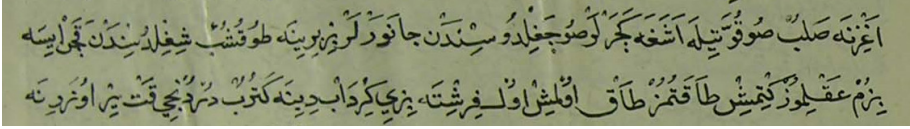 اغزنه صلب صو قوتيله اشغه بجرلر صو جغلدوسندن جانورلر بربرينه طوقشب شغلدسندن قجن ايسه
بزم عقلموز كتمش طاقتمز طاق اولمش اول فرشته بزى كرداب دبنه كتورب دردنجى قت ير اوزرنه